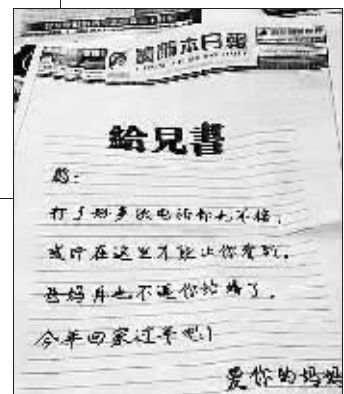 墨爾本日報
給兒書
鹏：
打了好多次电话你也不接，
或许在这里才能让你看到。
爸妈再也不逼你结婚了。
今年回家过年吧！
爱你的妈妈